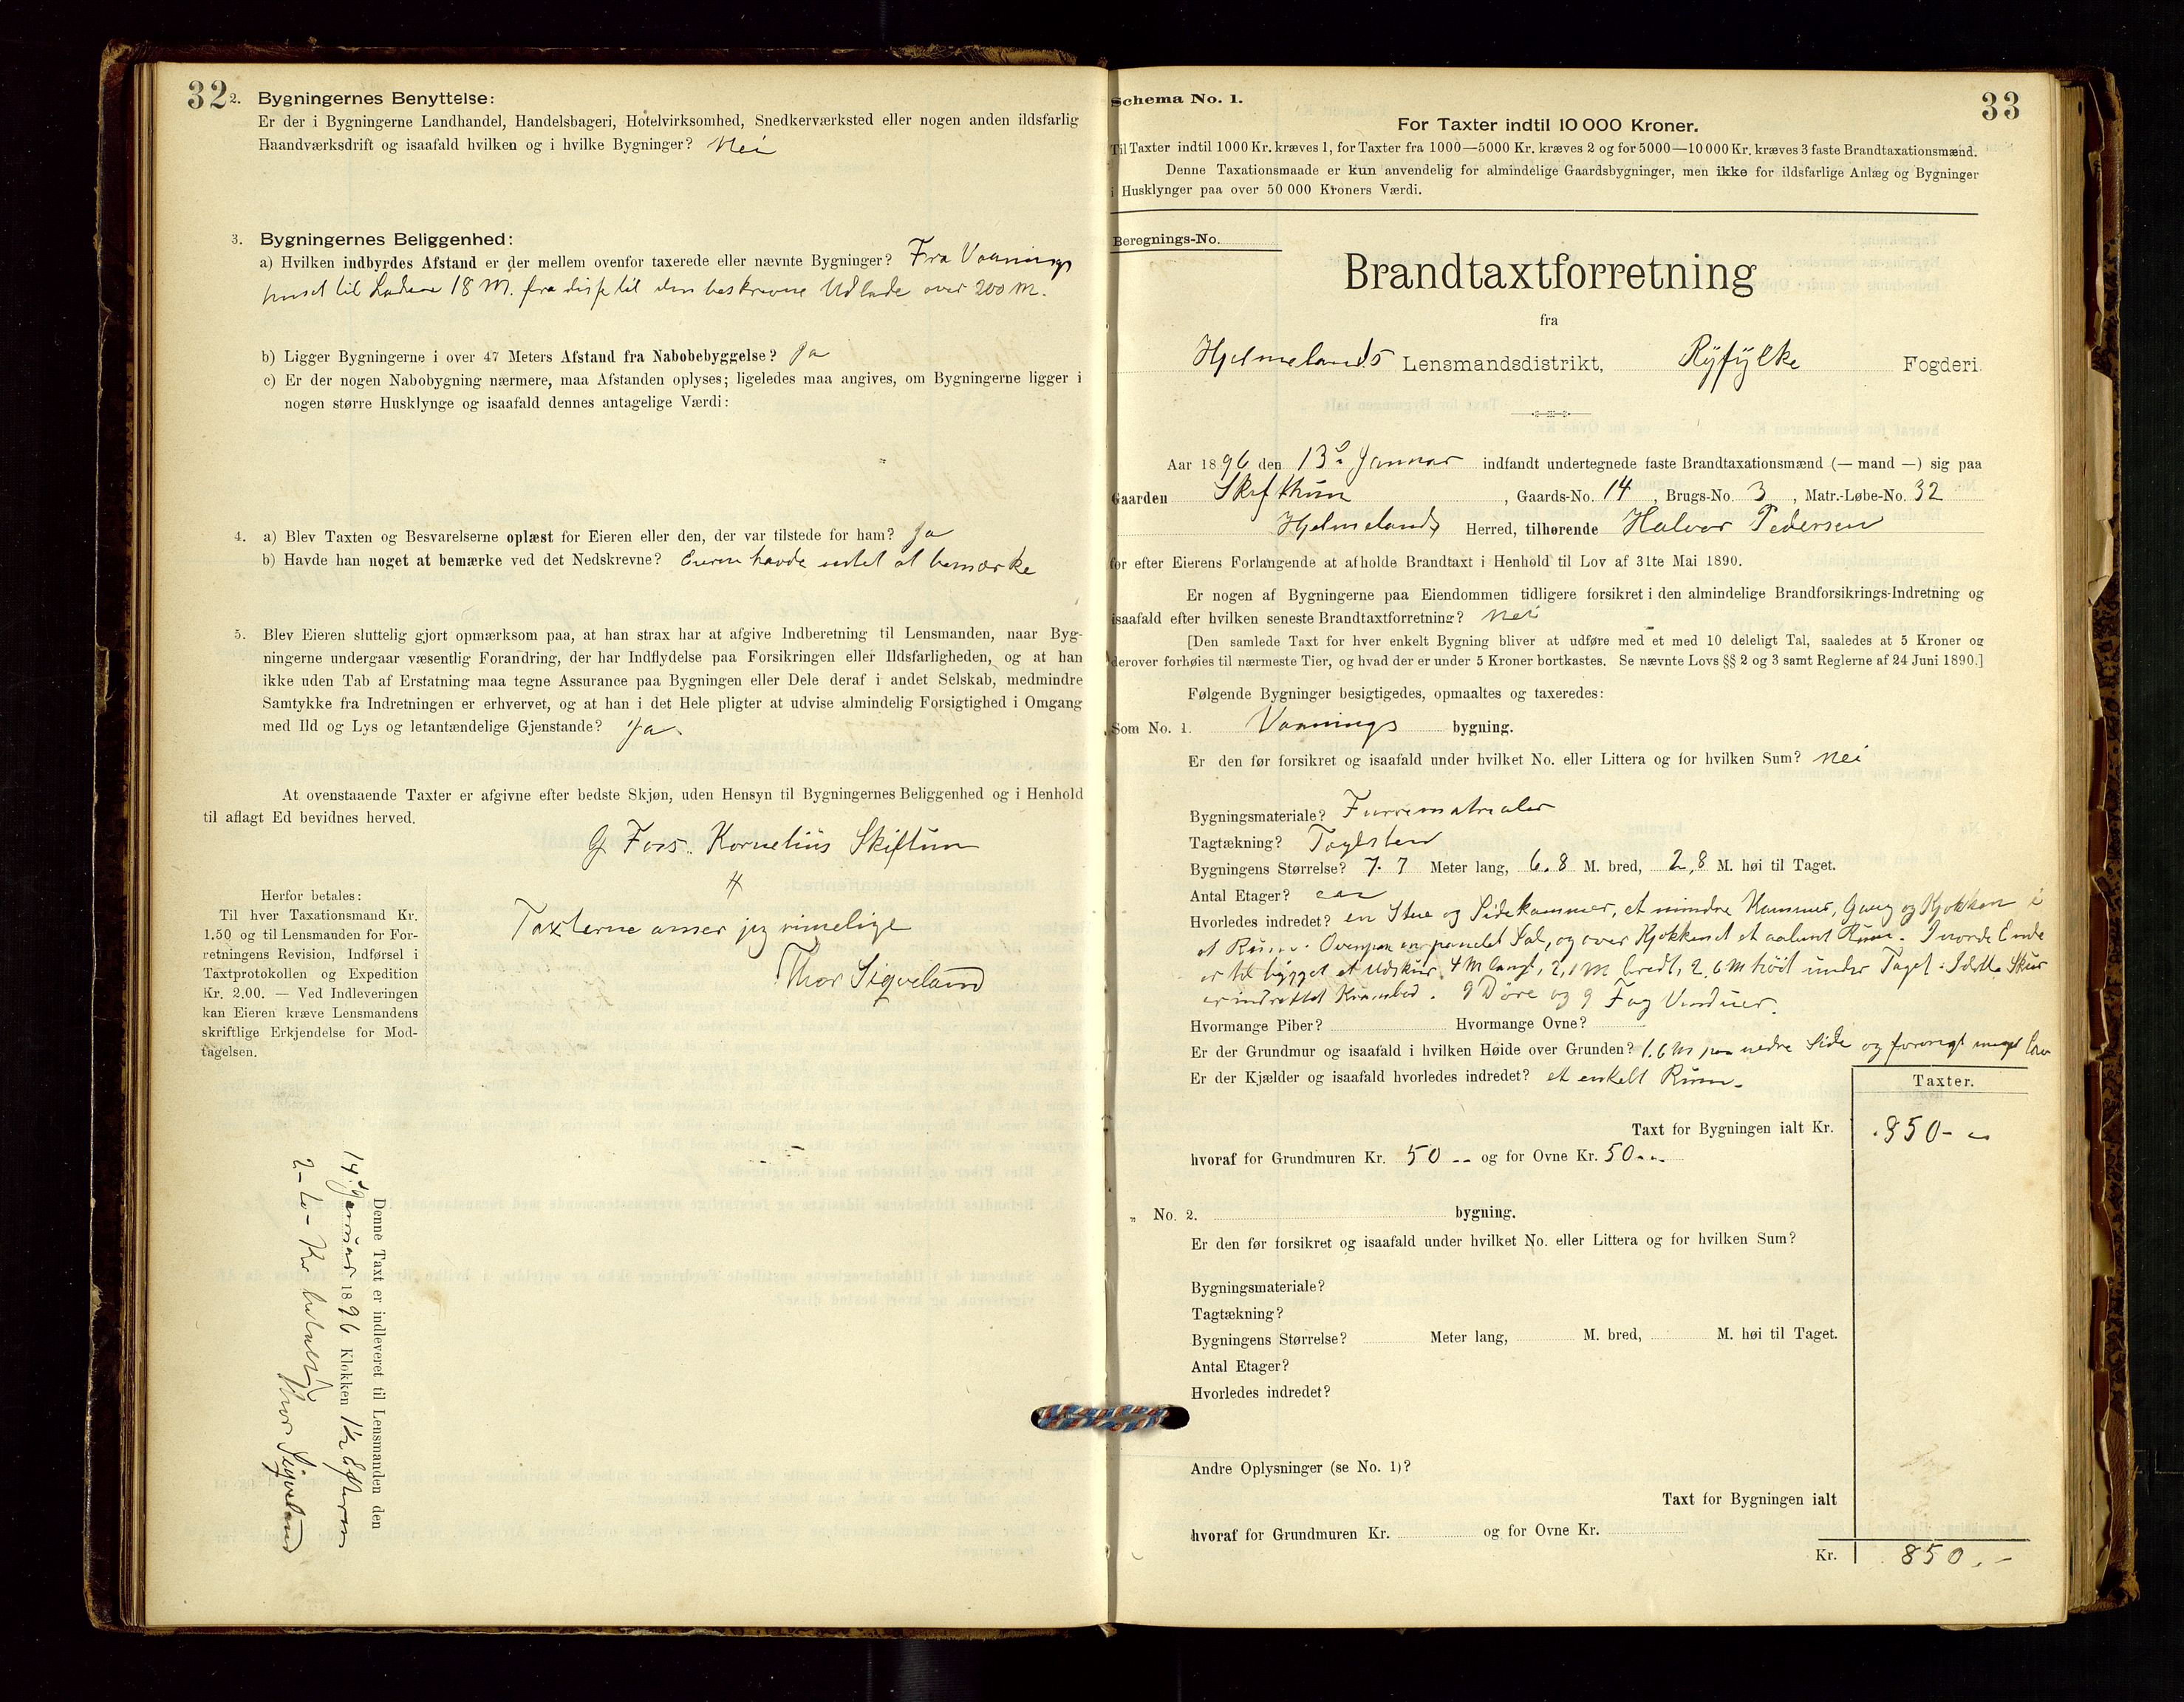 32
2. Bygningernes Benyttelse:
Er der i Bygningerne Landhandel, Handelsbageri, Hotelvirksomhed, Snedkerværksted eller nogen anden ildsfarlig
Haandværksdrift og isaafald hvilken og i hvilke Bygninger? Nei
3. Bygningernes Beliggenhed:
a) Hvilken indbyrdes Afstand er der mellem ovenfor taxerede eller nævnte Bygninger? Fra Vaanings
huset til Laden 18 M. fra disse til den beskrevne Udlade over 200 M.
b) Ligger Bygningerne i over 47 Meters Afstand fra Nabobebyggelse? Ja
c) Er der nogen Nabobygning nærmere, maa Afstanden oplyses; ligeledes maa angives, om Bygningerne ligger i
nogen større Husklynge og isaafald dennes antagelige Værdi:
4. a) Blev Taxten og Besvarelserne oplæst for Eieren eller den, der var tilstede for ham? Ja
b) Havde han noget at bemærke ved det Nedskrevne? Eieren havde intet at bemærke
5. Blev Eieren sluttelig gjort opmærksom paa, at han strax har at afgive Indberetning til Lensmanden, naar Byg-
ningerne undergaar væsentlig Forandring, der har Indflydelse paa Forsikringen eller Ildsfarligheden, og at han
ikke uden Tab af Erstatning maa tegne Assurance paa Bygningen eller Dele deraf i andet Selskab, medmindre
Samtykke fra Indretningen er erhvervet, og at han i det Hele pligter at udvise almindelig Forsigtighed i Omgang
med Ild og Lys og letantændelige Gjenstande? Ja.
At ovenstaaende Taxter er afgivne efter bedste Skjøn, uden Hensyn til Bygningernes Beliggenhed og i Henhold
til aflagt Ed bevidnes herved.
G Fors. Kornelius Skiftun
Herfor betales:
Til hver Taxationsmand Kr.
1.50 og til Lensmanden for For-
retningens Revision, Indførsel i
Taxtprotokollen og Expedition
Kr. 2.00. — Ved Indleveringen
kan Eieren kræve Lensmandens
skriftlige Erkjendelse for Mod-
tagelsen.
Taxterne anser jeg rimelige
Thor Sigveland
Denne Taxt er indleveret til Lensmanden den
14 Januar 1896 Klokken 1½ Efterm
2 - to - Kr betalt
Thor Sigveland
33
Schema No. 1.
For Taxter indtil 10 000 Kroner.
Til Taxter indtil 1000 Kr. kræves 1, for Taxter fra 1000—5000 Kr. kræves 2 og for 5000—10 000 Kr. kræves 3 faste Brandtaxationsmænd.
Denne Taxationsmaade er kun anvendelig for almindelige Gaardsbygninger, men ikke for ildsfarlige Anlæg og Bygninger
i Husklynger paa over 50 000 Kroners Værdi.
Beregnings-No.
Brandtaxtforretning
fra
Hjelmelands Lensmandsdistrikt, Ryfylke Fogderi.
Aar 1896 den 13de Januar indfandt undertegnede faste Brandtaxationsmænd (— mand —) sig paa
Gaarden Skifthun, Gaards-No. 14, Brugs-No. 3, Matr.-Løbe-No. 32
Hjelmelands Herred, tilhørende Halvor Pedersen
for efter Eierens Forlangende at afholde Brandtaxt i Henhold til Lov af 31te Mai 1890.
Er nogen af Bygningerne paa Eiendommen tidligere forsikret i den almindelige Brandforsikrings-Indretning og
isaafald efter hvilken seneste Brandtaxtforretning? Nei
[Den samlede Taxt for hver enkelt Bygning bliver at udføre med et med 10 deleligt Tal, saaledes at 5 Kroner og
derover forhøies til nærmeste Tier, og hvad der er under 5 Kroner bortkastes. Se nævnte Lovs §§ 2 og 3 samt Reglerne af 24 Juni 1890.]
Følgende Bygninger besigtigedes, opmaaltes og taxeredes:
Som No. 1. Vaanings bygning.
Er den før forsikret og isaafald under hvilket No. eller Littera og for hvilken Sum? Nei
Bygningsmateriale? Furrematrialer
Tagtækning? Taglsten
Bygningens Størrelse? 7.7 Meter lang, 6.8 M. bred, 2,8 M. høi til Taget.
Antal Etager? een
Hvorledes indredet? en Stue og Sidekammer, et mindre Kammer, Gang og Kjøkken i
et Rum. Ovenpaa en panelet Sal, og over Kjøkkenet et aabent Rum. I nordre Ende
er til bygget et Udskur, 4 M langt, 2,1 M bredt, 2.6 M høit under Taget. I dette Skur
er indrettet Krambod. 9 Døre og 9 Fag Vinduer.
Hvormange Piber? Hvormange Ovne?
Er der Grundmur og isaafald i hvilken Høide over Grunden? 1.6 M paa nedre Side og forøvrigt meget lav
Er der Kjælder og isaafald hvorledes indredet? et enkelt Rum.
Taxter.
Taxt for Bygningen ialt Kr. 850-
hvoraf for Grundmuren Kr. 50 -- og for Ovne Kr. 50--
„ No. 2. bygning.
Er den før forsikret og isaafald under hvilket No. eller Littera og for hvilken Sum?
Bygningsmateriale?
Tagtækning?
Bygningens Størrelse? Meter lang, M. bred, M. høi til Taget.
Antal Etager?
Hvorledes indredet?
Andre Oplysninger (se No. 1)?
Taxt for Bygningen ialt
hvoraf for Grundmuren Kr. og for Ovne Kr.
Kr. 850.-